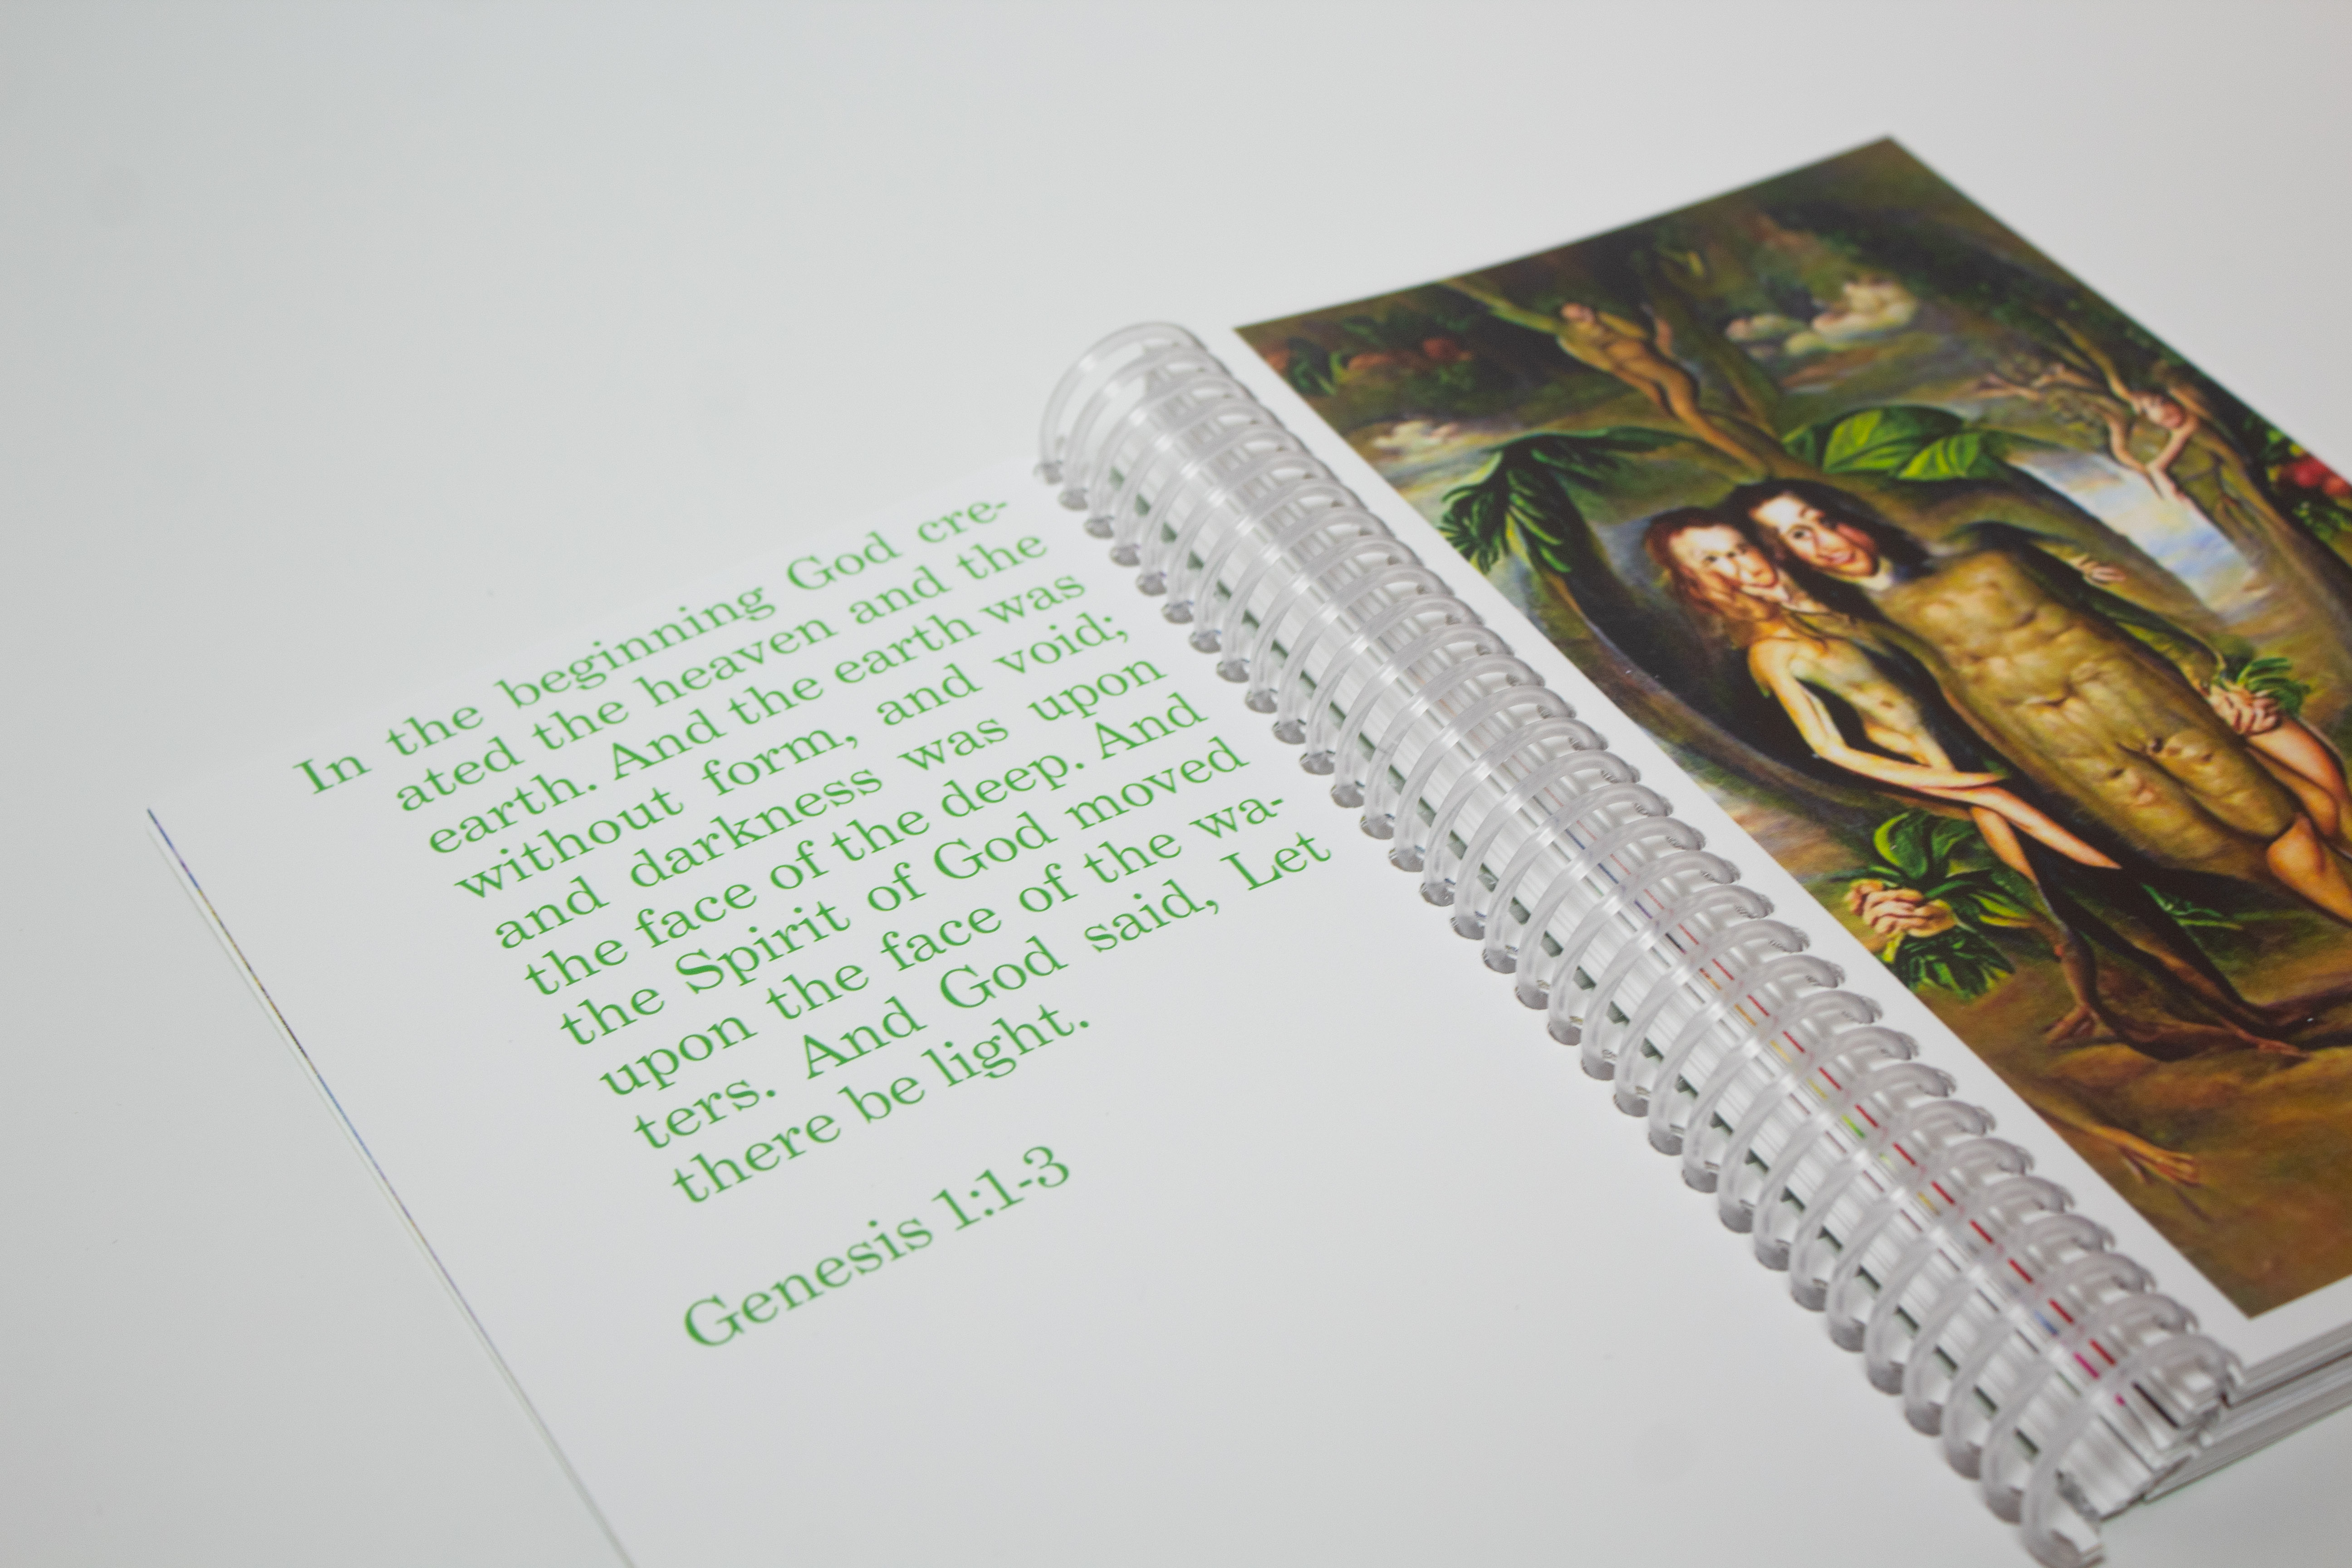 In the beginning God cre-
ated the heaven and the
earth. And the earth was
without form, and void;
and darkness was upon
the face of the deep. And
the Spirit of God moved
upon the face of the wa-
ters. And God said, Let
there be light.
Genesis 1:1-3